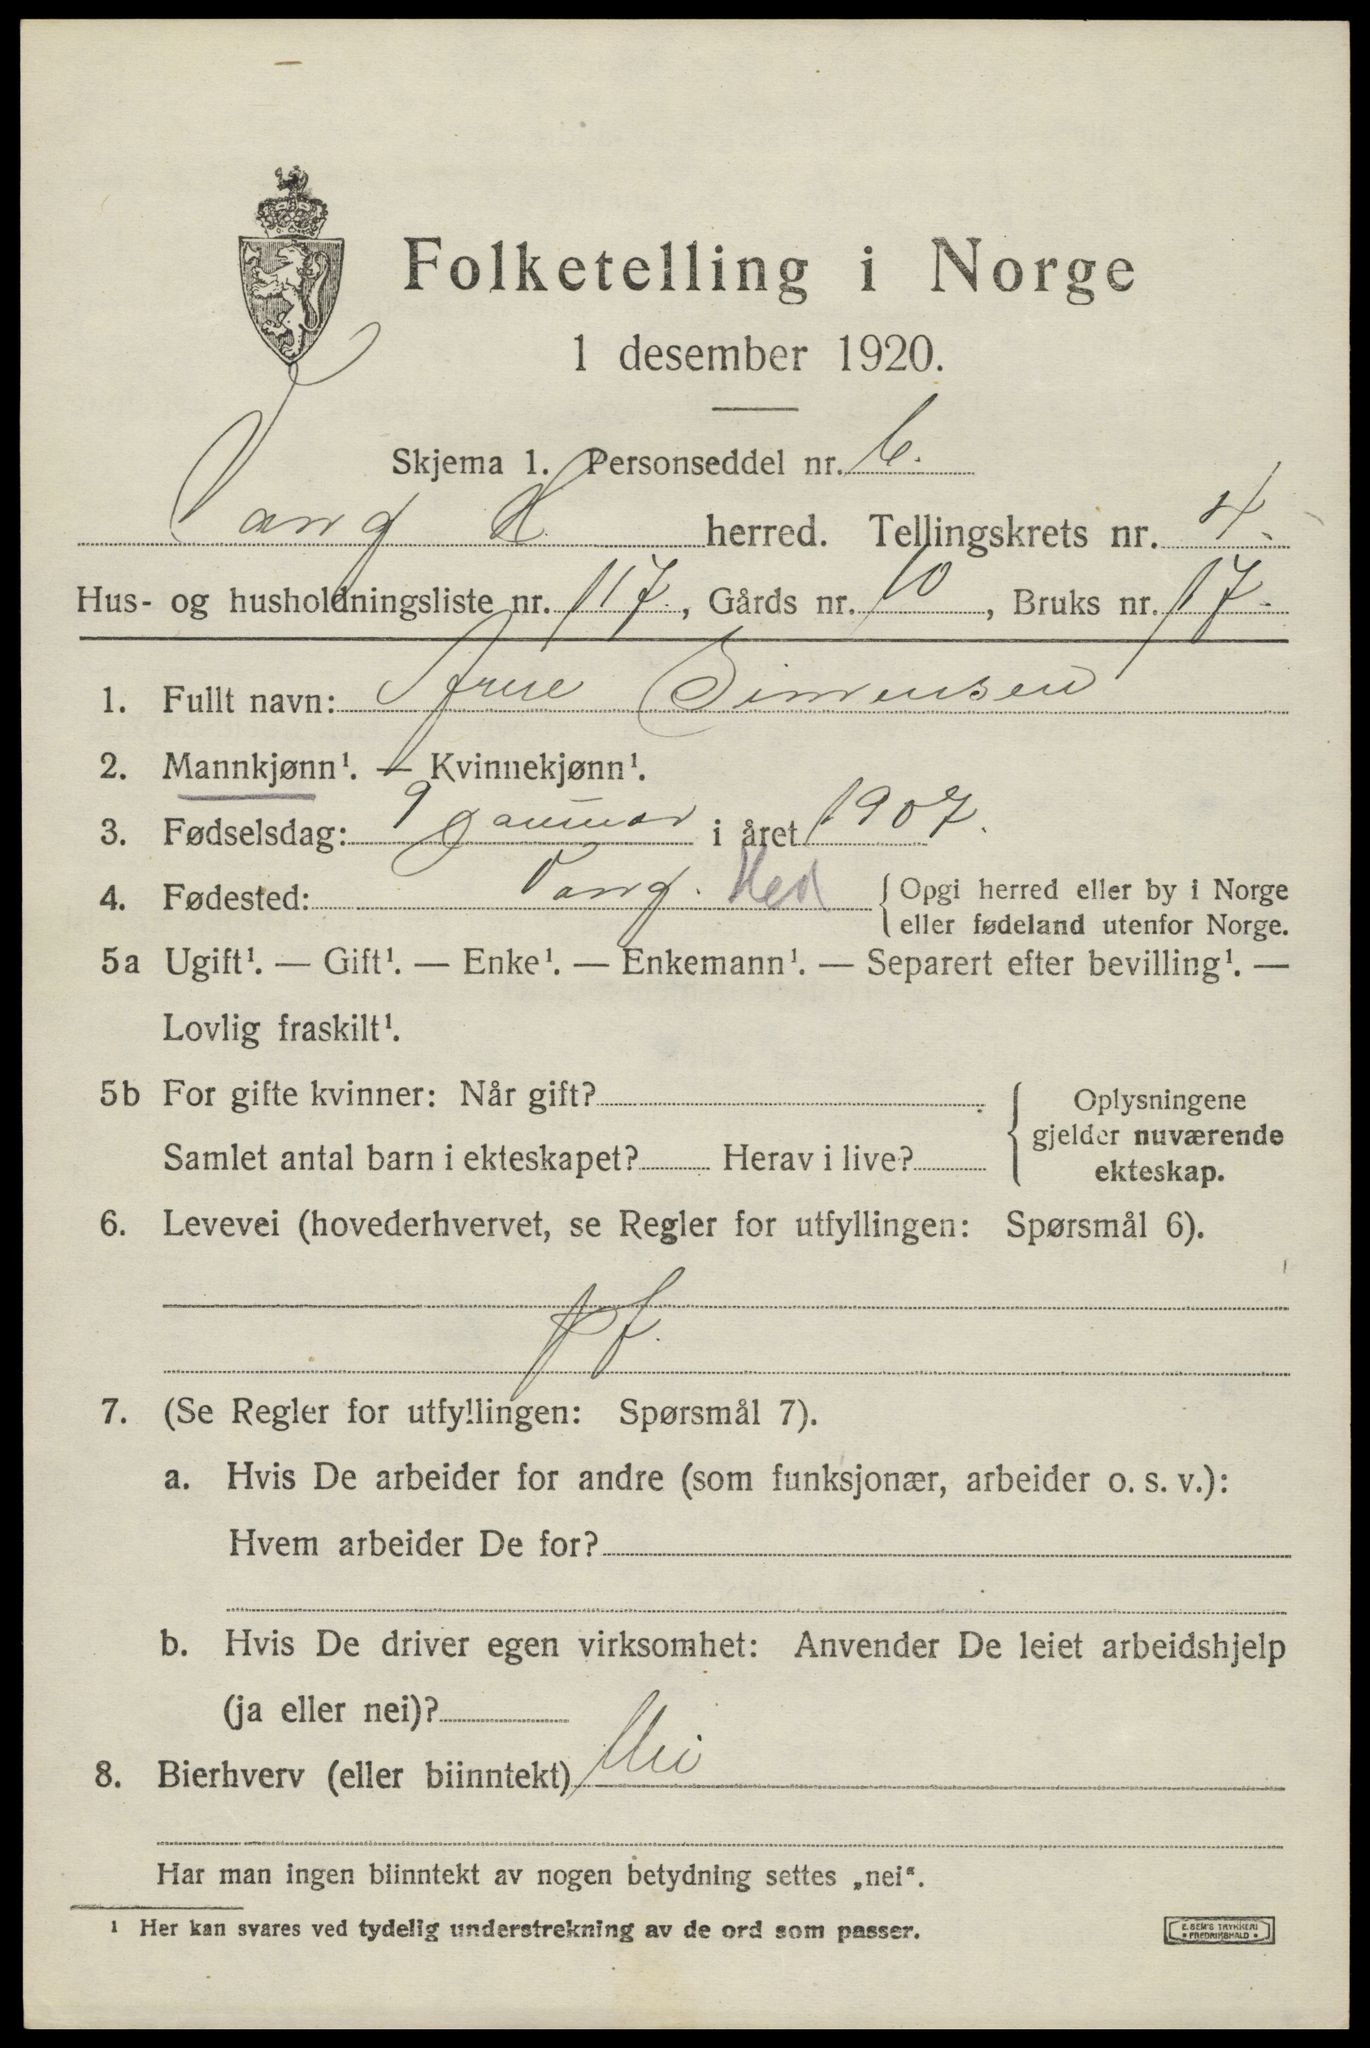 Folketelling i Norge
1 desember 1920.
Skjema 1. Personseddel nr. 6.
Vang H. herred. Tellingskrets nr. 4.
Hus- og husholdningsliste nr. 117., Gårds nr. 10, Bruks nr. 17.
1. Fullt navn: Arne Simensen
2. Mannkjønn¹. — Kvinnekjønn¹.
3. Fødselsdag: 9 januar i året 1907.
4. Fødested: Vang. Hed { Opgi herred eller by i Norge
eller fødeland utenfor Norge.
5a Ugift¹. — Gift¹. — Enke¹. — Enkemann¹. — Separert efter bevilling¹. —
Lovlig fraskilt¹.
5b For gifte kvinner: Når gift?
Samlet antal barn i ekteskapet? Herav i live?
{ Oplysningene
gjelder nuværende
ekteskap.
6. Levevei (hovederhvervet, se Regler for utfyllingen: Spørsmål 6).
pf.
7. (Se Regler for utfyllingen: Spørsmål 7).
a. Hvis De arbeider for andre (som funksjonær, arbeider o. s. v.):
Hvem arbeider De for?
b. Hvis De driver egen virksomhet: Anvender De leiet arbeidshjelp
(ja eller nei)?
8. Bierhverv (eller biinntekt) Nei
Har man ingen biinntekt av nogen betydning settes „nei“.
¹ Her kan svares ved tydelig understrekning av de ord som passer.
E. SEM'S TRYKKERI
• FREDRIKSHALD •